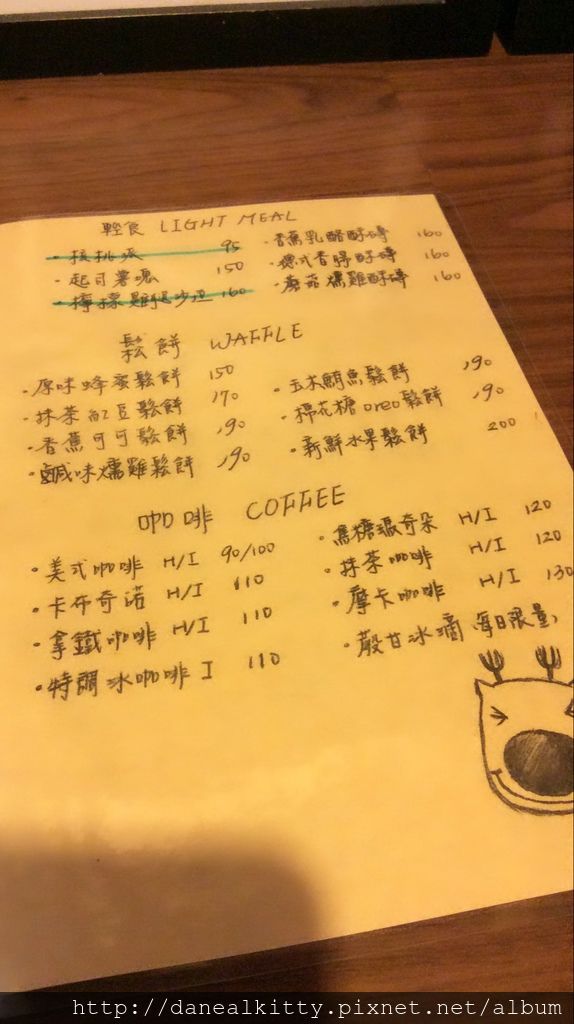 輕食 LIGHT MEAL
・核桃派 95
・起司薯塊 150
・檸檬雞腿沙 160
・香蕉乳酪酥磚 160
・德式香腸酥磚 160
・蘑菇燻雞酥磚 160
鬆餅 WAFFLE
・原味蜂蜜鬆餅 150
・抹茶紅豆鬆餅 170
・香蕉可可鬆餅 190
・鹹味燻雞鬆餅 190
・玉米鮪魚鬆餅 190
・棉花糖oreo鬆餅 190
・新鮮水果鬆餅 200
咖啡 COFFEE
・美式咖啡 H/I 90/100
・卡布奇諾 H/I 110
・拿鐵咖啡 H/I 110
・特調冰咖啡 I 110
・焦糖瑪奇朵 H/I 120
・抹茶咖啡 H/I 120
・摩卡咖啡 H/I 130
・甘冰滴 每日限量
http://danealkitty.pixnet.net/album